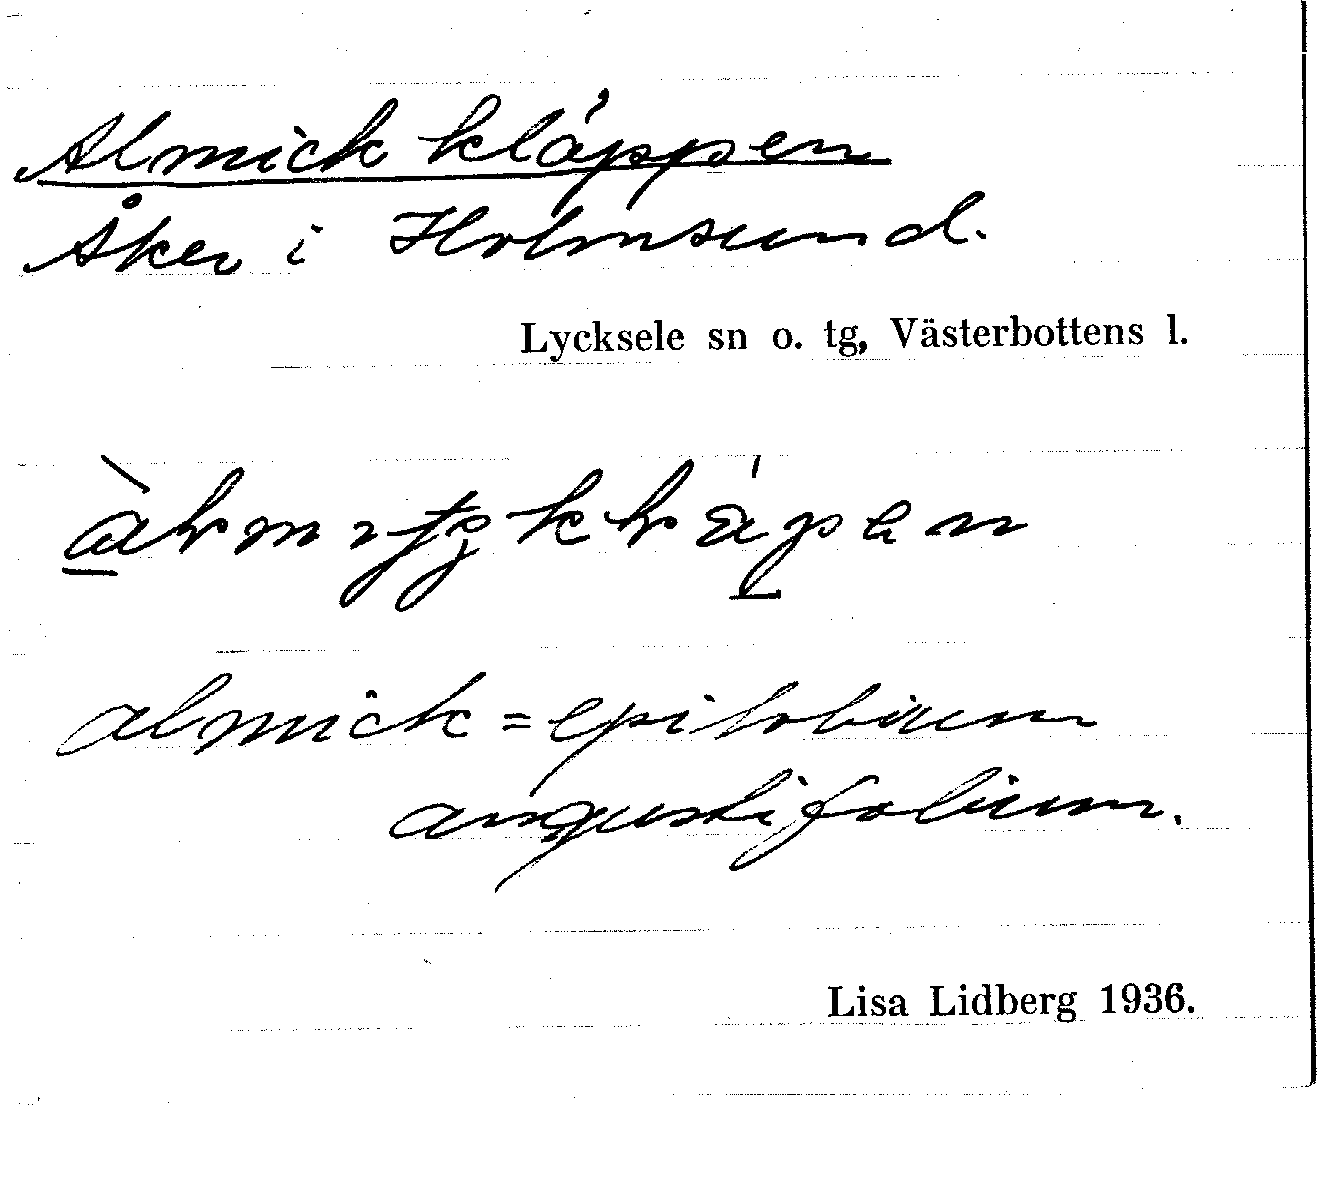 Almickkläppen
Åker i Holmsund.
Lycksele sn o. tg, Västerbottens l.
almick = epilobium
angustifolium.
Lisa Lidberg 1936.